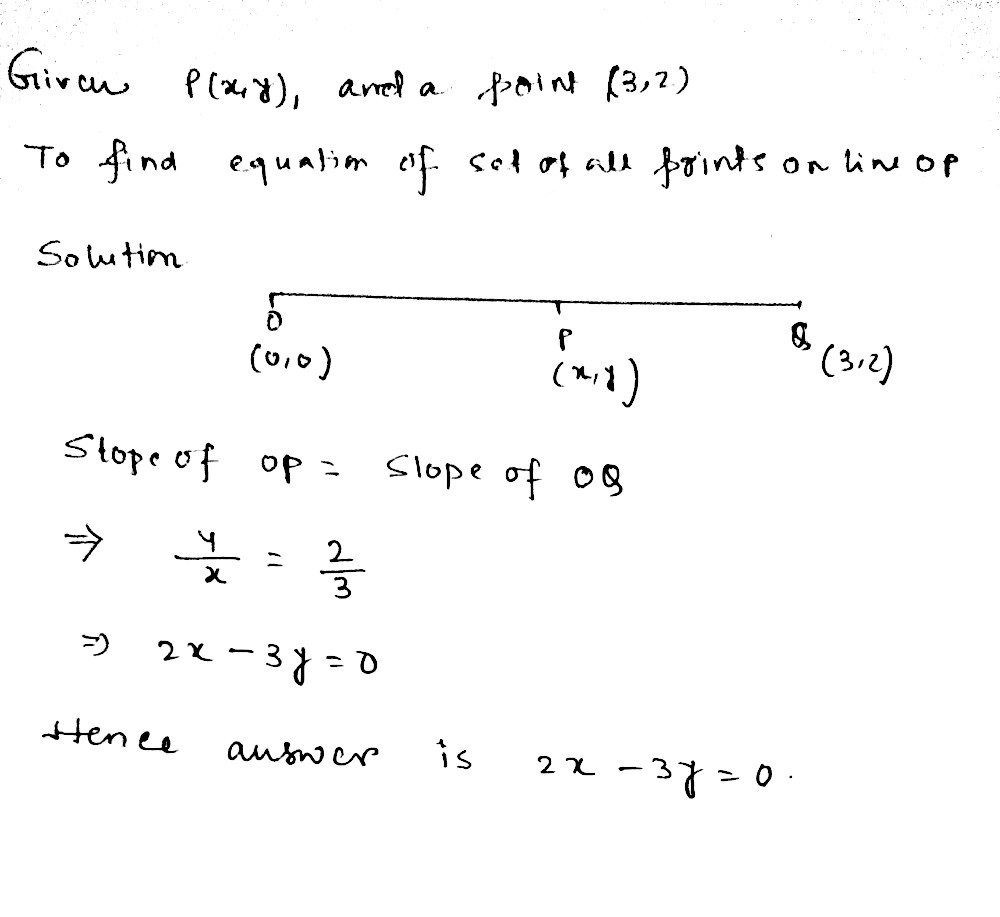 Given P(x,y), and a point (3,2)
To find equation of set of all points on line OP
Solution
O P Q
(0,0) (x,y) (3,2)
Slope of OP = Slope of OQ
⇒ y/x = 2/3
⇒ 2x - 3y = 0
Hence answer is 2x - 3y = 0.